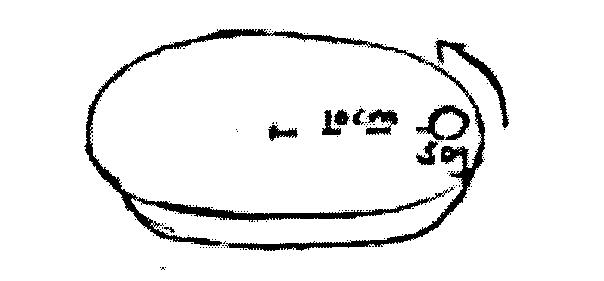 10cm
50g